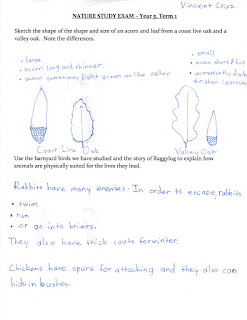 Vincent Cruz
NATURE STUDY EXAM – Year 5, Term 1
Sketch the shape of the shape and size of an acorn and leaf from a coast live oak and a
valley oak. Note the differences.
• large
• acorn long and thinner.
• acorn sometimes light green unlike valley.
• small
• acorn short & fat
•
than coast live
Coast Live Oak
Valley Oak
Use the barnyard birds we have studied and the story of Raggylug to explain how
animals are physically suited for the lives they lead.
Rabbits have many enemies. In order to escape, rabbits
• swim
• run
• or go into briers.
They also have thick coats for winter.
Chickens have spurs for attacking and they also can
hide in bushes.